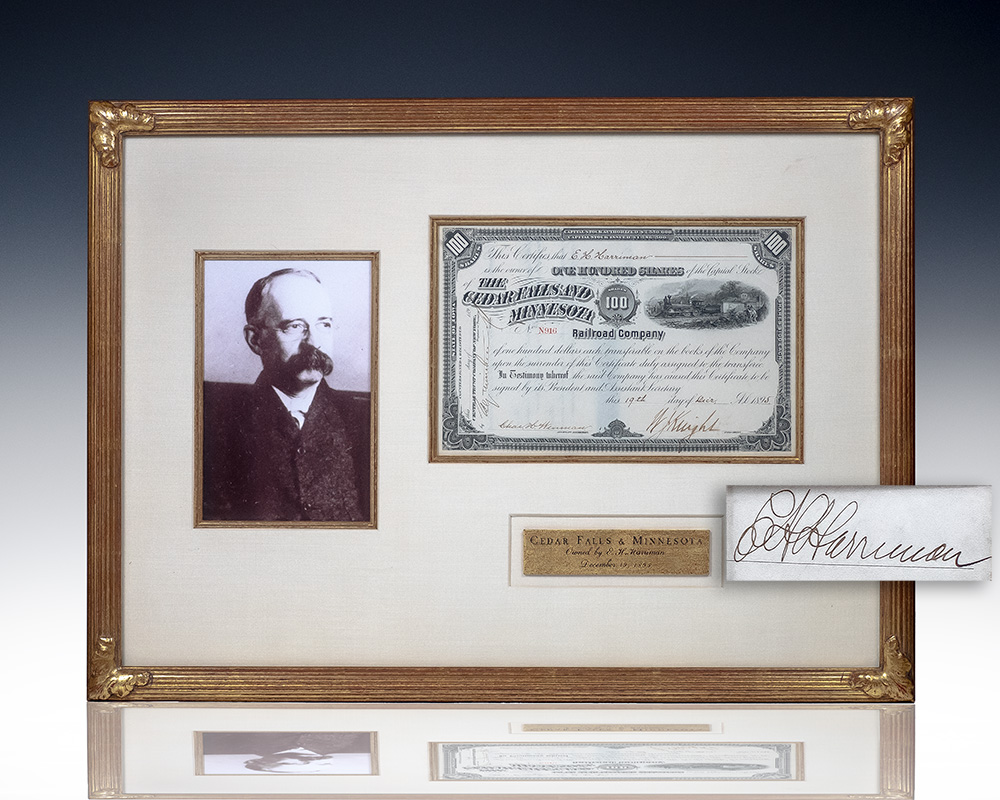 100
100
This Certifies that E.H. Harriman
is the owner of ONE HUNDRED SHARES of the Capital Stock
of THE
CEDAR FALLS AND
MINNESOTA
100
No. N916
Railroad Company
of one hundred dollars each transferable on the books of the Company
upon the surrender of this Certificate duly assigned to the transfree
In Testimony whereof the said Company has caused this Certificate to be
signed by its President and Assistant Secretary
this 19th day of Dec A.D. 1895
W J Knight
CEDAR FALLS & MINNESOTA
Owned by E. H. Harriman
December 19, 1895
E H Harriman